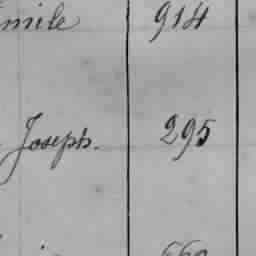 mile 914
Joseph. 295